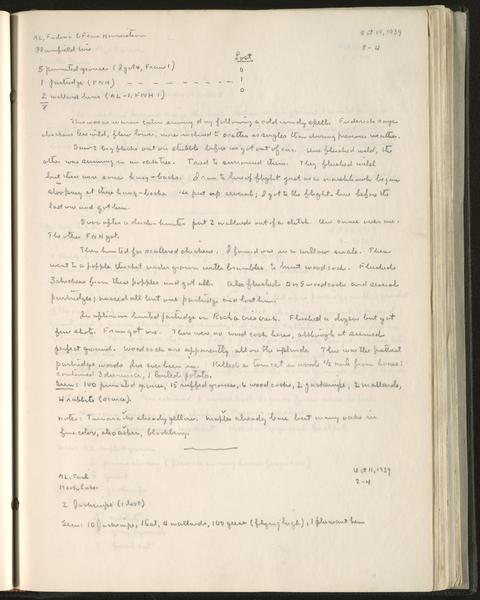 AL, Frederick & Fran Hamerstrom Oct 14, 1939
Plainfield Wis. 3-4
Lost
5 pinnated grouse (AL 4, Fran 1) 0
1 partridge (FNH) 1
2 mallard hens (AL-1, FNH 1) 0
8
This was a warm calm sunny day following a cold windy spell. Frederick says
chickens less wild, flew lower, more inclined to scatter as singles than during previous weather.
Saw 2 big flocks out on stubble before we got out of car. One flushed wild, the
other was sunning in an oak tree. Tried to surround them. They flushed wild
but there were some hang-backs. I ran to line of flight just as a marsh hawk began
swooping at these hang-backs. He put up several; I got to the flight-line before the
last one and got him.
Soon after a duck hunter put 2 mallards out of a ditch. One came over me.
The other FNH got.
Then hunted for scattered chickens. I found one in a willow swale. Then
went to a popple thicket undergrown with brambles to hunt woodcock. Flushed
3 chickens from these popples and got all. Also flushed 4 or 5 woodcocks and several
partridges; missed all but one partridge and lost him.
In afternoon hunted partridge on Roche a Cri creek. Flushed a dozen but got
few shots. Fran got one. There were no woodcock here, although it seemed
perfect ground. Woodcock are apparently all on the uplands. This was the prettiest
partridge woods I've ever seen. Killed a tomcat in woods ½ mile from house:
contained 3 deermice, 1 boiled potato.
Seen: 100 pinnated grouse, 15 ruffed grouse, 6 woodcocks, 2 jacksnipe, 2 mallards,
4 rabbits (scarce).
Notes: Tamaracks already yellow. Maples already bare but many oaks in
fine color, also ashes, blackberry.
AL, Carl Oct 11, 1939
3-4
2 Jacksnipes (1 lost)
Seen: 10 Jacksnipe, 1 teal, 4 mallards, 100 geese (flying high), 1 pheasant hen